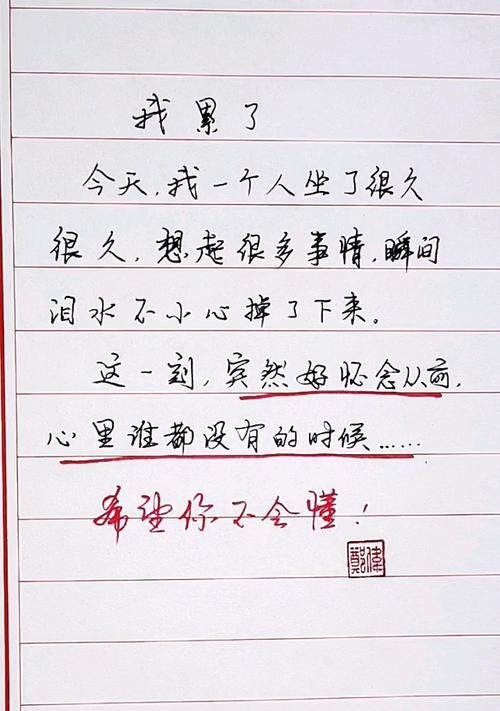 我累了
今天,我一个人坐了很久
很久,想起很多事情,瞬间
泪水不小心掉了下来。
这一刻,突然好怀念从前,
心里谁都没有的时候……
希望你不会懂!
鄭偉